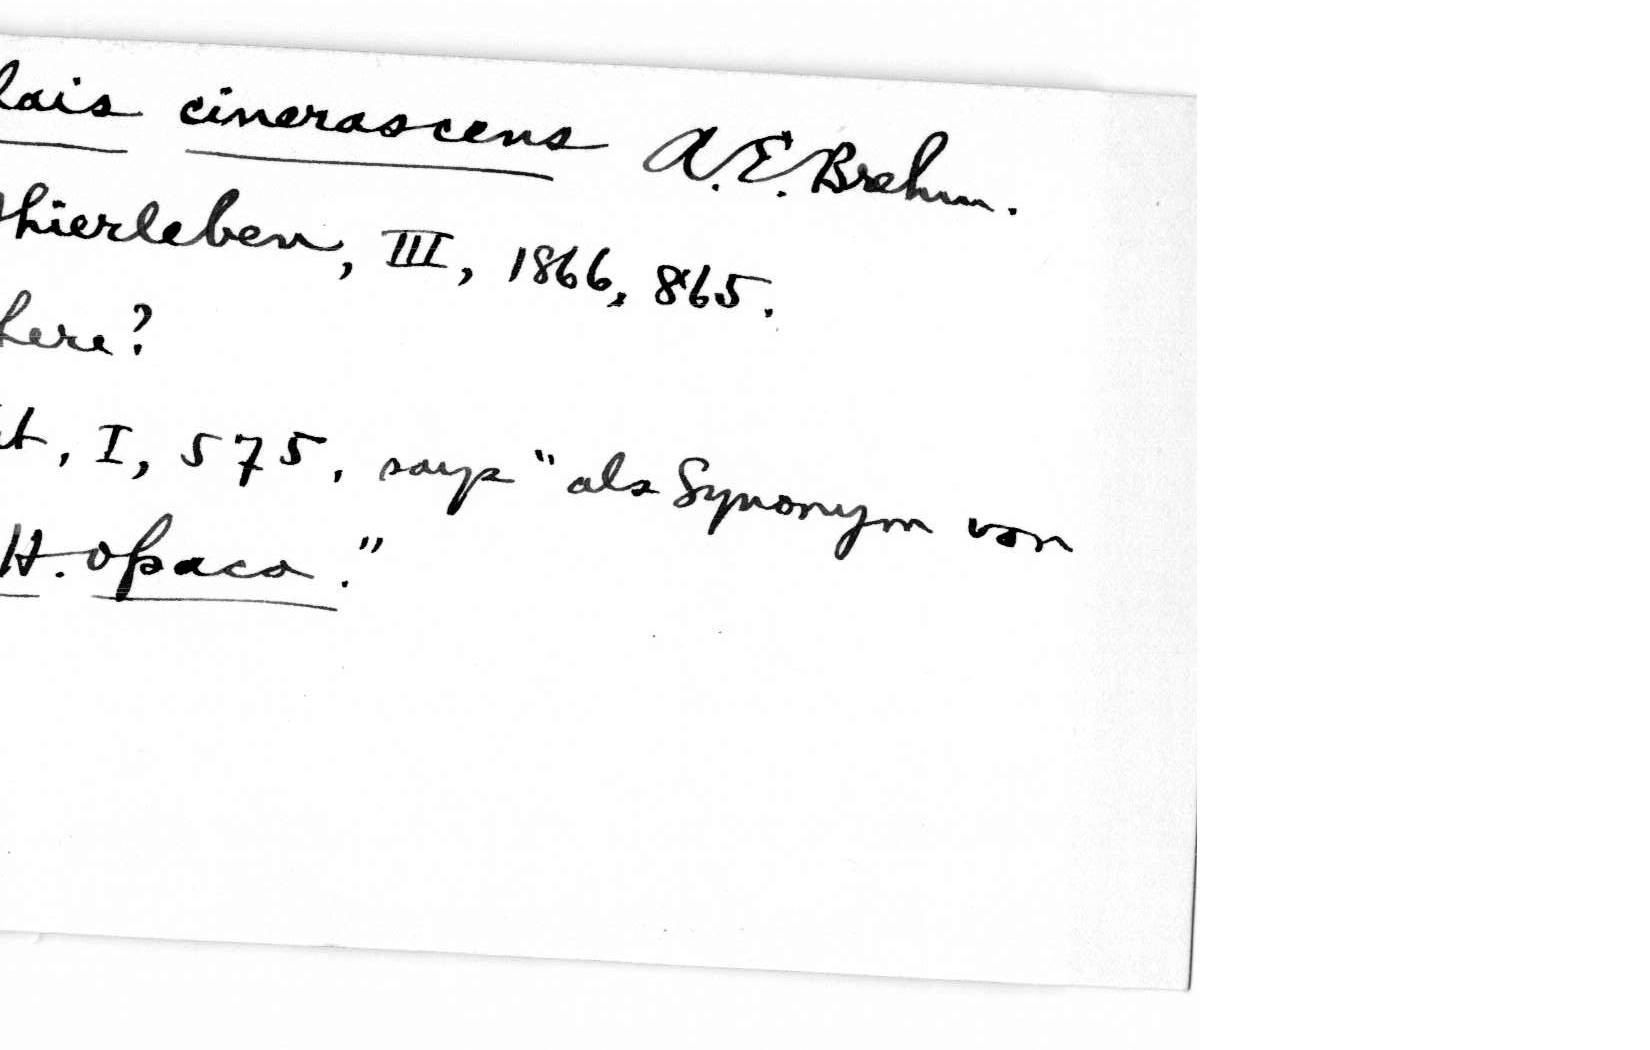 lais cinerascens A.E. Brehm.
hierleben, III, 1866, 865.
here?
t, I, 575. says "als Synonym von
H. opaca."